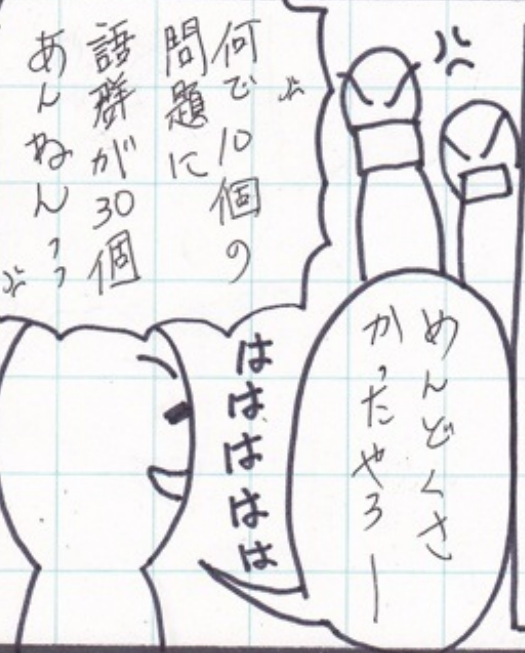 何で10個の
問題に
語群が30個
あんねんっっ
めんどくさ
かったやろー
はははははは